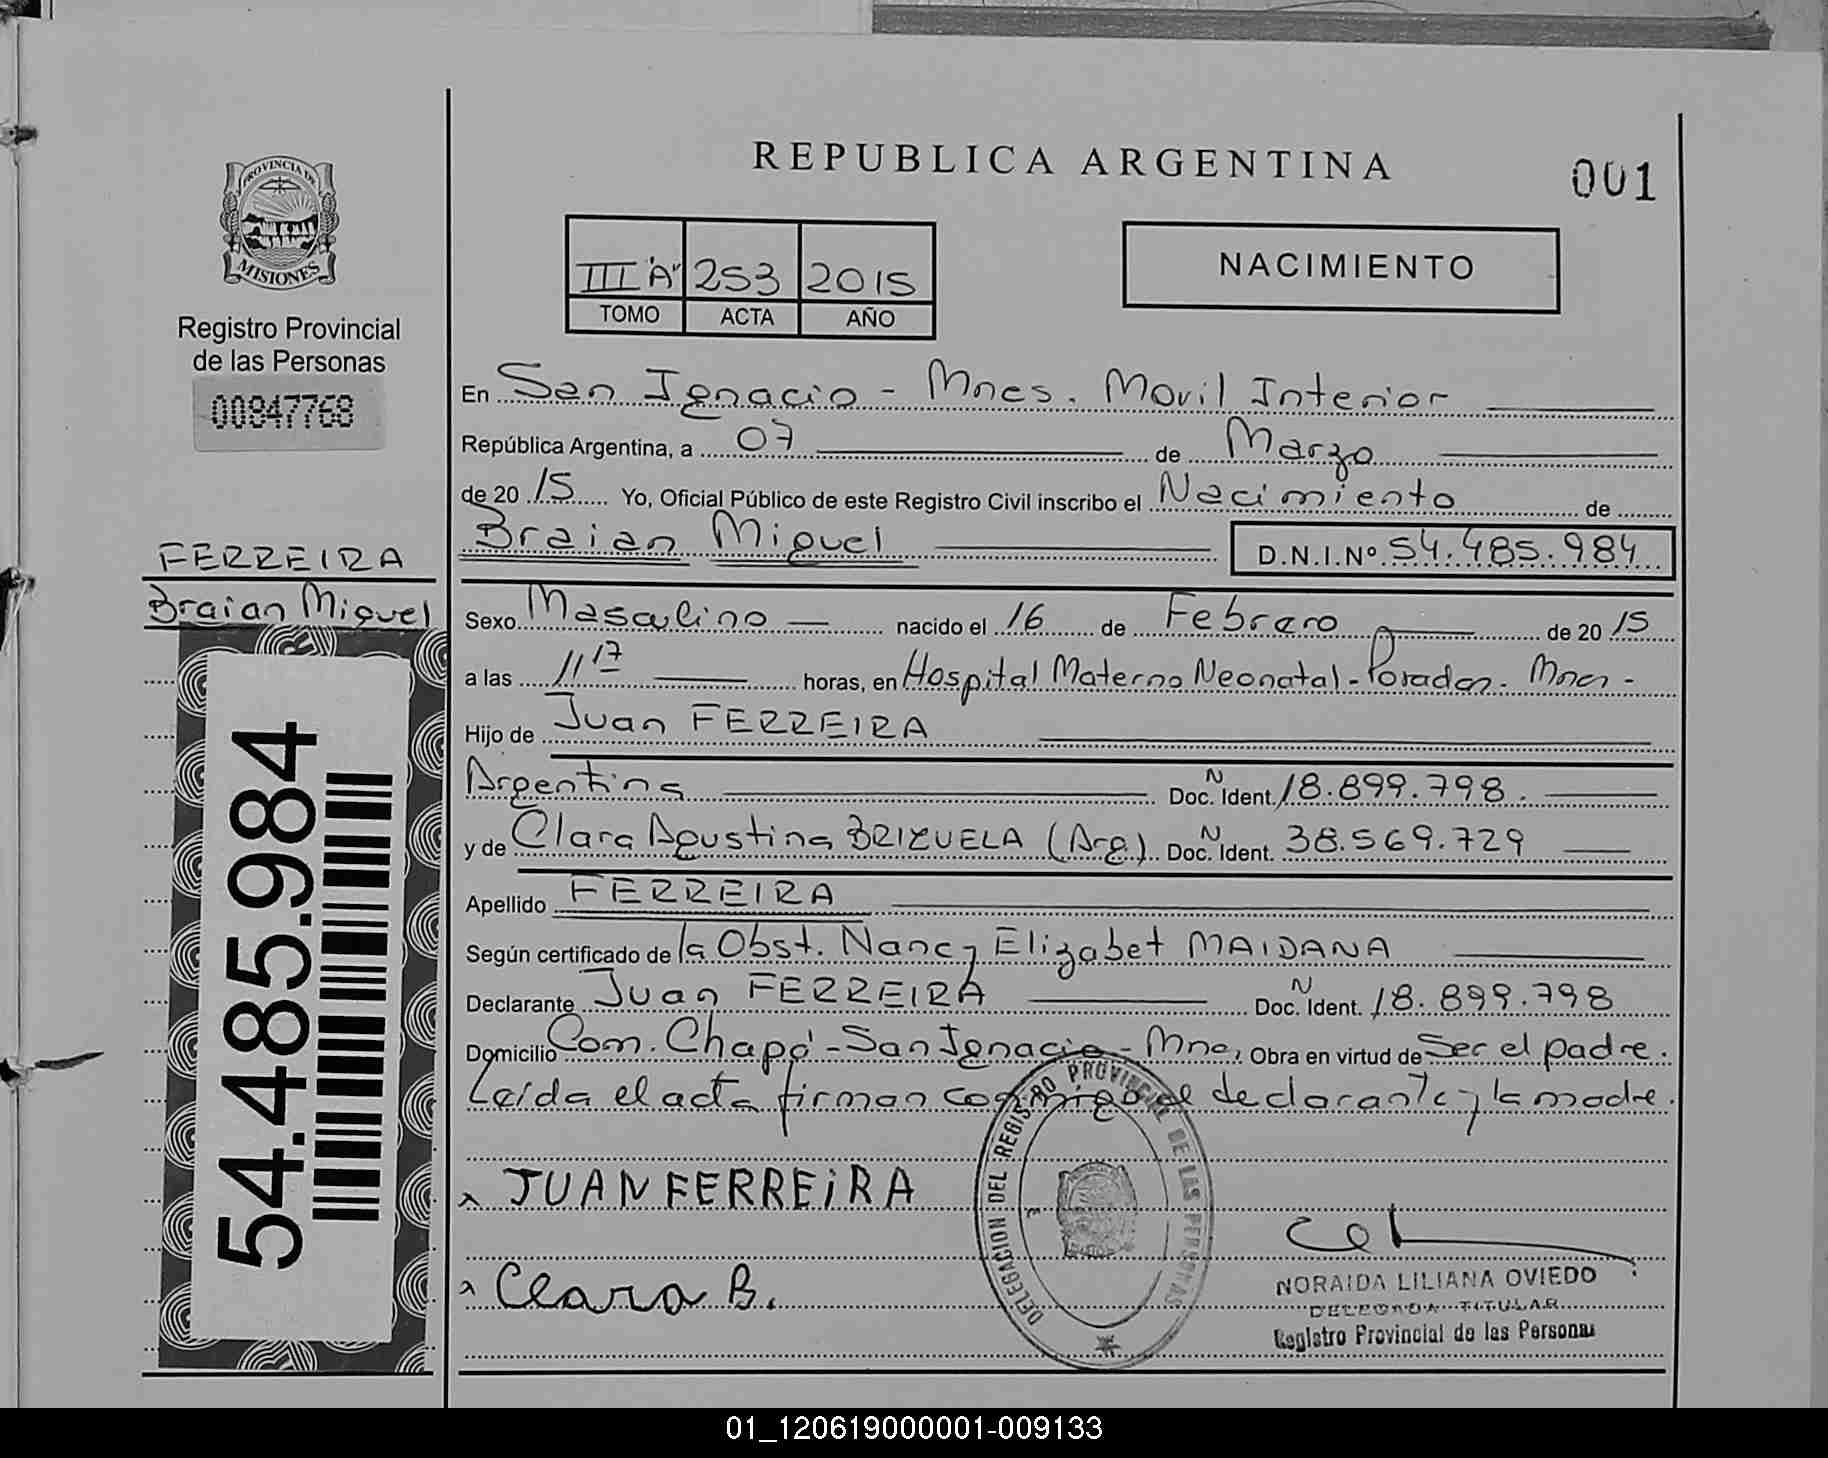 REPUBLICA ARGENTINA
001
PROVINCIA DE
MISIONES
Registro Provincial
de las Personas
00847768
III "A" 253 2015
TOMO ACTA AÑO
NACIMIENTO
En San Ignacio - Mnes. Movil Interior
República Argentina, a 07 de Marzo
de 20 15 Yo, Oficial Público de este Registro Civil inscribo el Nacimiento de
Braian Miguel D.N.I.Nº 54.485.984
FERREIRA
Braian Miguel
54.485.984
Sexo Masculino nacido el 16 de Febrero de 20 15
a las 11 17 horas, en Hospital Materno Neonatal - Posadas. Mnes -
Hijo de Juan FERREIRA
Argentina Doc. N Ident. 18.899.798.
y de Clara Agustina BRIZUELA (Arg.) Doc. N Ident. 38.569.729
Apellido FERREIRA
Según certificado de la Obst. Nancy Elizabet MAIDANA
Declarante Juan FERREIRA Doc. N Ident. 18.899.798
Domicilio Com. Chapá - San Ignacio - Mnes. Obra en virtud de Ser el padre.
Leída el acta firman conmigo el declarante y la madre.
JUAN FERREIRA
Clara B.
DELEGACION DEL REGISTRO PROVINCIAL DE LAS PERSONAS
NORAIDA LILIANA OVIEDO
DELEGADA TITULAR
Registro Provincial de las Personas
01_120619000001-009133